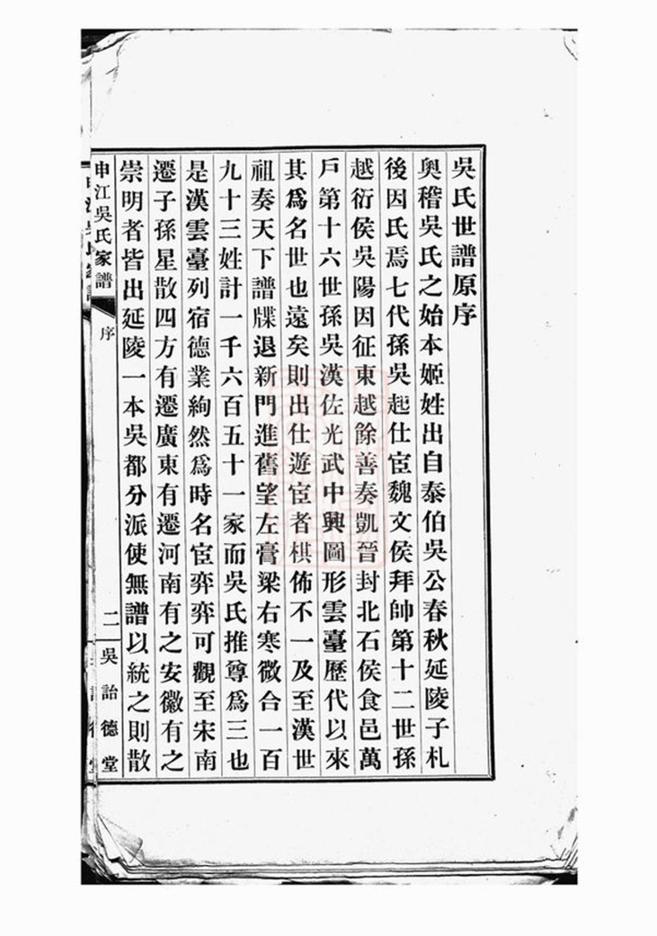 吳氏世譜原序
輿稽吳氏之始本姬姓出自泰伯吳公春秋延陵子札
後因氏焉七代孫吳起仕宦魏文侯拜帥第十二世孫
越衍侯吳陽因征東越餘善奏凱晉封北石侯食邑萬
戶第十六世孫吳漢佐光武中興圖形雲臺歷代以來
其爲名世也遠矣則出仕遊宦者棋佈不一及至漢世
祖奏天下譜牒退新門進舊望左膏梁右寒微合一百
九十三姓計一千六百五十一家而吳氏推尊爲三也
是漢雲臺列宿德業絢然爲時名宦弈弈可觀至宋南
遷子孫星散四方有遷廣東有遷河南有之安徽有之
崇明者皆出延陵一本吳都分派使無譜以統之則散
申江吳氏家譜 序 二 吳詒德堂